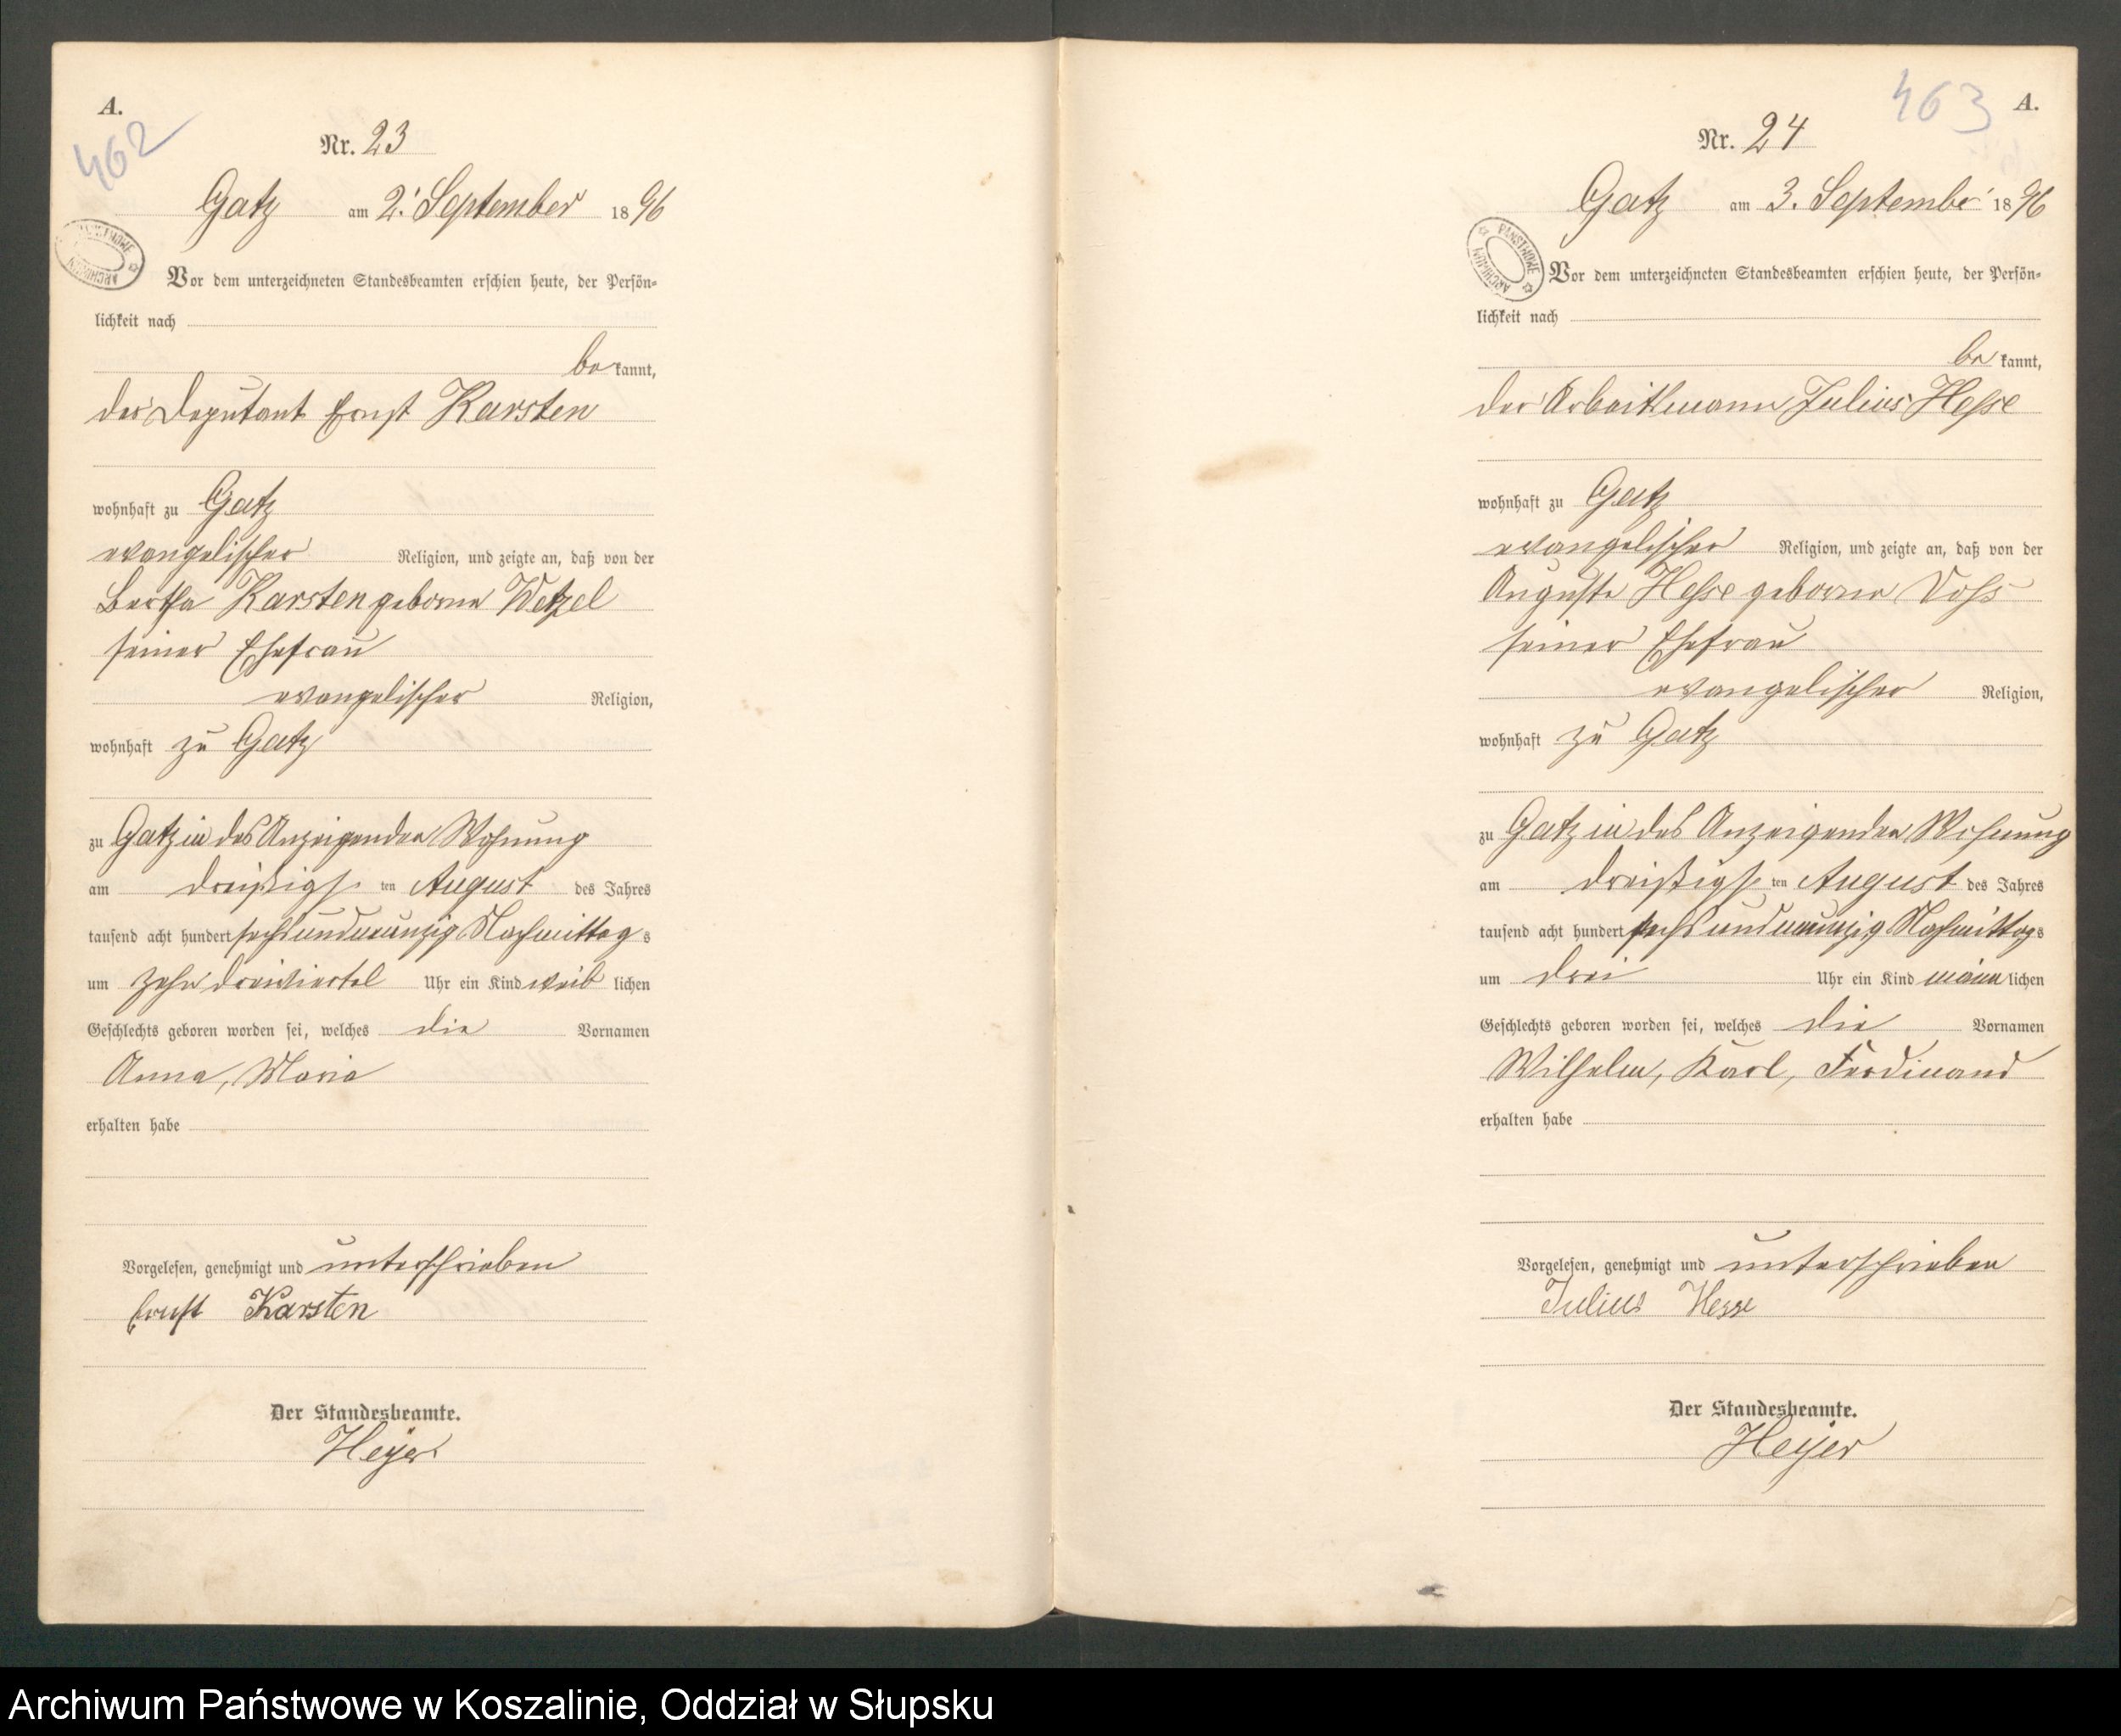 A.
462
Nr. 23
Gatz am 2. September 1896
Vor dem unterzeichneten Standesbeamten erschien heute, der Persön-
lichkeit nach
bekannt,
der Deputant Ernst Karsten
wohnhaft zu Gatz
evangelischer Religion, und zeigte an, daß von der
Bertha Karsten geborne Wetzel
seiner Ehefrau
evangelischer Religion,
wohnhaft zu Gatz
zu Gatz in des Anzeigenden Wohnung
am dreißigsten August des Jahres
tausend acht hundert sechsundneunzig Nachmittags
um zehn dreiviertel Uhr ein Kind weiblichen
Geschlechts geboren worden sei, welches die Vornamen
Anna, Maria
erhalten habe
Vorgelesen, genehmigt und unterschrieben
Ernst Karsten
Der Standesbeamte.
Heyer
463
A.
Nr. 24
Gatz am 3. September 1896
PAŃSTWOWE ARCHIWUM
Vor dem unterzeichneten Standesbeamten erschien heute, der Persön-
lichkeit nach
bekannt,
der Arbeitsmann Julius Hesse
wohnhaft zu Gatz
evangelischer Religion, und zeigte an, daß von der
Auguste Hesse geborne Voss
seiner Ehefrau
evangelischer Religion,
wohnhaft zu Gatz
zu Gatz in des Anzeigenden Wohnung
am dreißigsten August des Jahres
tausend acht hundert sechsundneunzig Nachmittags
um drei Uhr ein Kind männlichen
Geschlechts geboren worden sei, welches die Vornamen
Wilhelm, Karl, Ferdinand
erhalten habe
Vorgelesen, genehmigt und unterschrieben
Julius Hesse
Der Standesbeamte.
Heyer
Archiwum Państwowe w Koszalinie, Oddział w Słupsku